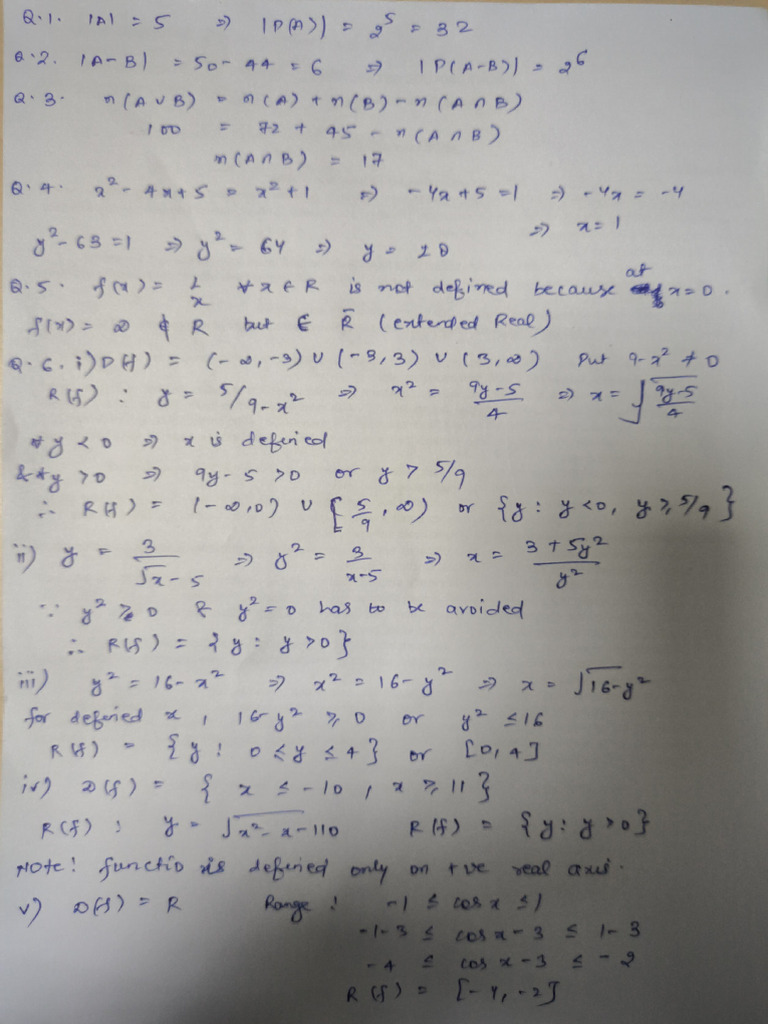 Q.1. |A| = 5 ⇒ |P(A)| = 2^5 = 32
Q.2. |A-B| = 50-44 = 6 ⇒ |P(A-B)| = 2^6
Q.3. n(A∪B) = n(A) + n(B) - n(A∩B)
100 = 72 + 45 - n(A∩B)
n(A∩B) = 17
Q.4. x² - 4x+5 = x²+1 ⇒ -4x+5 = 1 ⇒ -4x = -4
⇒ x = 1
y²-63 = 1 ⇒ y² = 64 ⇒ y =
Q.5. f(x) = 1/x ∀ x ∈ R is not defined because at x = 0.
f(x) = ∞ ∉ R but ∈ R̄ (extended Real)
Q.6. i) D(f) = (-∞, -3) ∪ (-3, 3) ∪ (3, ∞) Put 9-x² ≠ 0
R(f) : y = 5/9-x² ⇒ x² = (9y-5)/4 ⇒ x = √((9y-5)/4)
∀ y < 0 ⇒ x is defined
& ∀ y > 0 ⇒ 9y-5 > 0 or y > 5/9
∴ R(f) = (-∞, 0) ∪ [5/9, ∞) or {y : y < 0, y ≥ 5/9}
ii) y = 3/√x-5 ⇒ y² = 3/(x-5) ⇒ x = (3+5y²)/y²
∵ y² ≥ 0 & y² = 0 has to be avoided
∴ R(f) = {y : y > 0}
iii) y² = 16-x² ⇒ x² = 16-y² ⇒ x = √16-y²
for defined x, 16-y² ≥ 0 or y² ≤ 16
R(f) = {y : 0 ≤ y ≤ 4} or [0, 4]
iv) D(f) = { x ≤ -10, x ≥ 11}
R(f) : y = √x²-x-110 R(f) = {y : y > 0}
NOTE! functio is defined only on +ve real axis.
v) D(f) = R Range : -1 ≤ cos x ≤ 1
-1-3 ≤ cos x-3 ≤ 1-3
-4 ≤ cos x-3 ≤ -2
R(f) = [-4, -2]